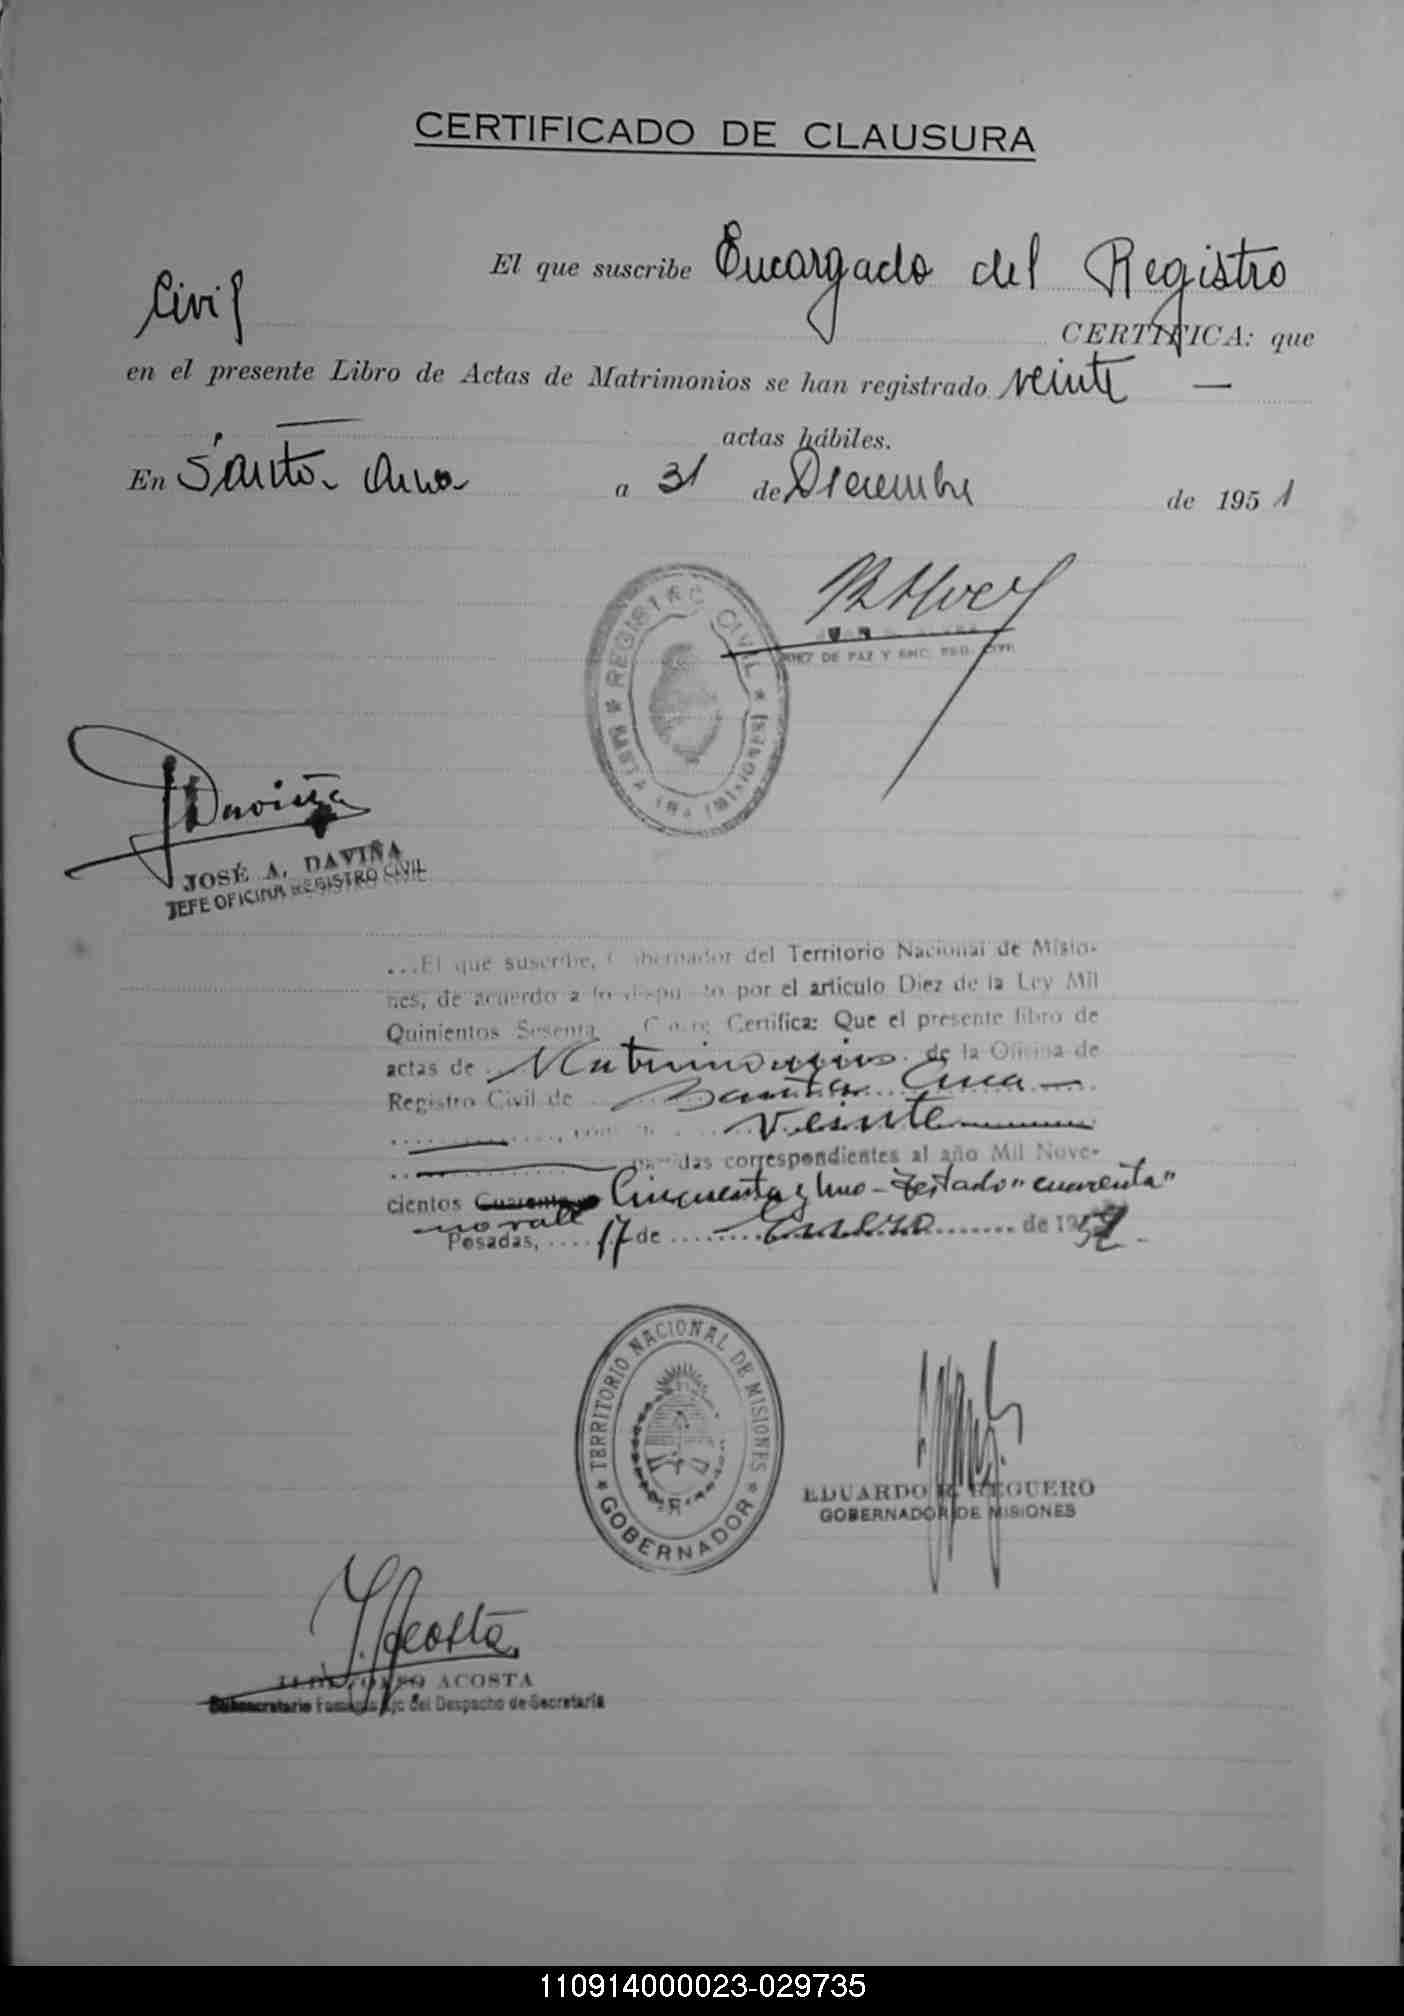 CERTIFICADO DE CLAUSURA
El que suscribe Encargado del Registro
Civil
CERTIFICA: que
en el presente Libro de Actas de Matrimonios se han registrado veinte —
actas hábiles.
En Santa Ana a 31 de Diciembre de 1951
REGISTRO CIVIL
SANTA ANA (MISIONES)
JUEZ DE PAZ Y ENC. REG. CIVIL
JDaviña
JOSÉ A. DAVIÑA
JEFE OFICINA REGISTRO CIVIL
...El que suscribe, Gobernador del Territorio Nacional de Misio-
nes, de acuerdo a lo dispuesto por el artículo Diez de la Ley Mil
Quinientos Sesenta Certifica: Que el presente libro de
actas de Matrimonios de la Oficina de
Registro Civil de Santa Ana
Veinte
partidas correspondientes al año Mil Nove-
cientos Cuarenta y Cincuenta y Uno - Testado "cuarenta"
no vale
Posadas, .... 17 de ........ Enero ........ de 1952.
TERRITORIO NACIONAL DE MISIONES
GOBERNADOR
EDUARDO REGUERO
GOBERNADOR DE MISIONES
Acosta
ACOSTA
Subsecretario del Despacho de Secretaría
110914000023-029735